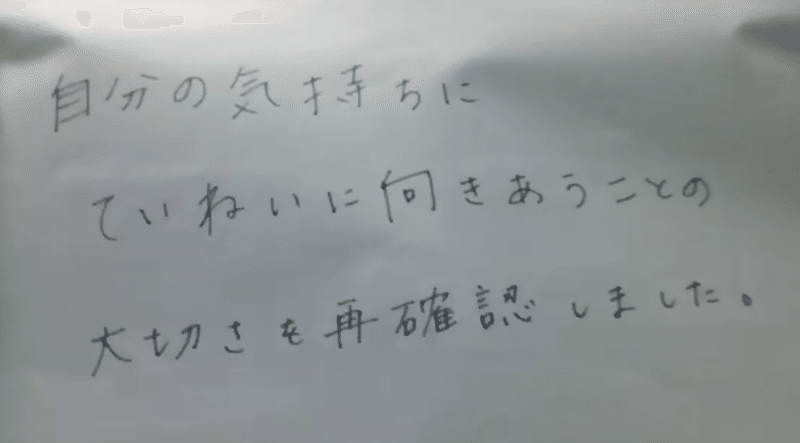 自分の気持ちに
ていねいに向きあうことの
大切さを再確認しました。